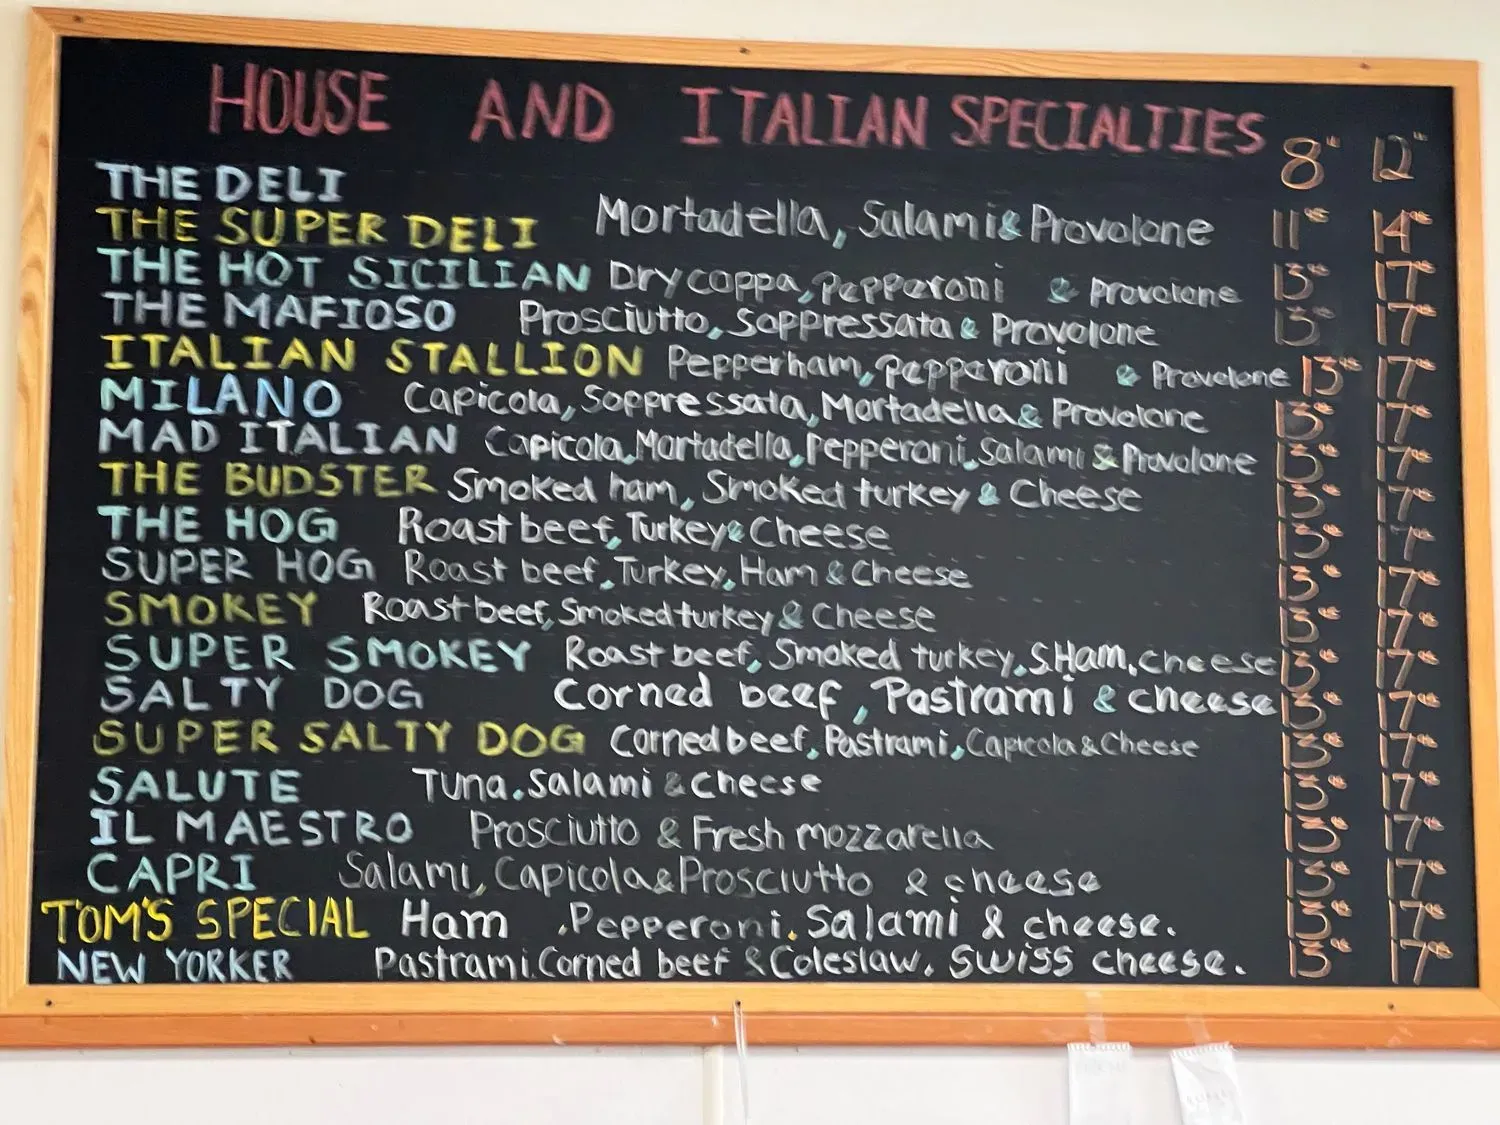 HOUSE AND ITALIAN SPECIALTIES 8" 12"
THE DELI
THE SUPER DELI Mortadella, Salami & Provolone 11 14
THE HOT SICILIAN Dry coppa, Pepperoni & Provolone 13 17
THE MAFIOSO Prosciutto, Soppressata & Provolone 13 17
ITALIAN STALLION Pepperham, Pepperoni & Provolone 13 17
MILANO Capicola, Soppressata, Mortadella & Provolone 13 17
MAD ITALIAN Capicola, Mortadella, Pepperoni, Salami & Provolone 13 17
THE BUDSTER Smoked ham, Smoked turkey & Cheese 13 17
THE HOG Roast beef, Turkey & Cheese 13 17
SUPER HOG Roast beef, Turkey, Ham & Cheese 13 17
SMOKEY Roast beef, Smoked turkey & Cheese 13 17
SUPER SMOKEY Roast beef, Smoked turkey, S.Ham, cheese 13 17
SALTY DOG Corned beef, Pastrami & cheese 13 17
SUPER SALTY DOG Corned beef, Pastrami, Capicola & Cheese 13 17
SALUTE Tuna, Salami & cheese 13 17
IL MAESTRO Prosciutto & Fresh mozzarella 13 17
CAPRI Salami, Capicola & Prosciutto & cheese 13 17
TOM'S SPECIAL Ham, Pepperoni, Salami & cheese. 13 17
NEW YORKER Pastrami, Corned beef & Coleslaw, Swiss cheese. 13 17